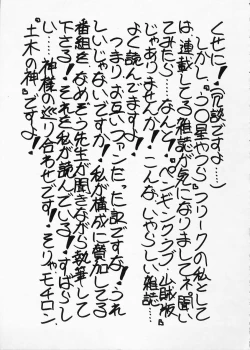 くせに!(冗談ですよ…)
しかし、"う○星やつら"フリークの私として
は連載してる雑誌が気になりましてネ、聞い
てみたら…なんと!"ペンギンクラブ山賊版"
じゃありませんか!こんないやらしい雑誌…
よく読んでます!
つまりお互いファンだった訳ですな!うれ
しいじゃないですか!私が構成に参加してる
番組をなめぞう先生が聞きながら執筆して
下さる!それを私が読んでいる!すばらし
い…神様の巡り合わせです!そりゃモチロン
"土木の神"ですよ!